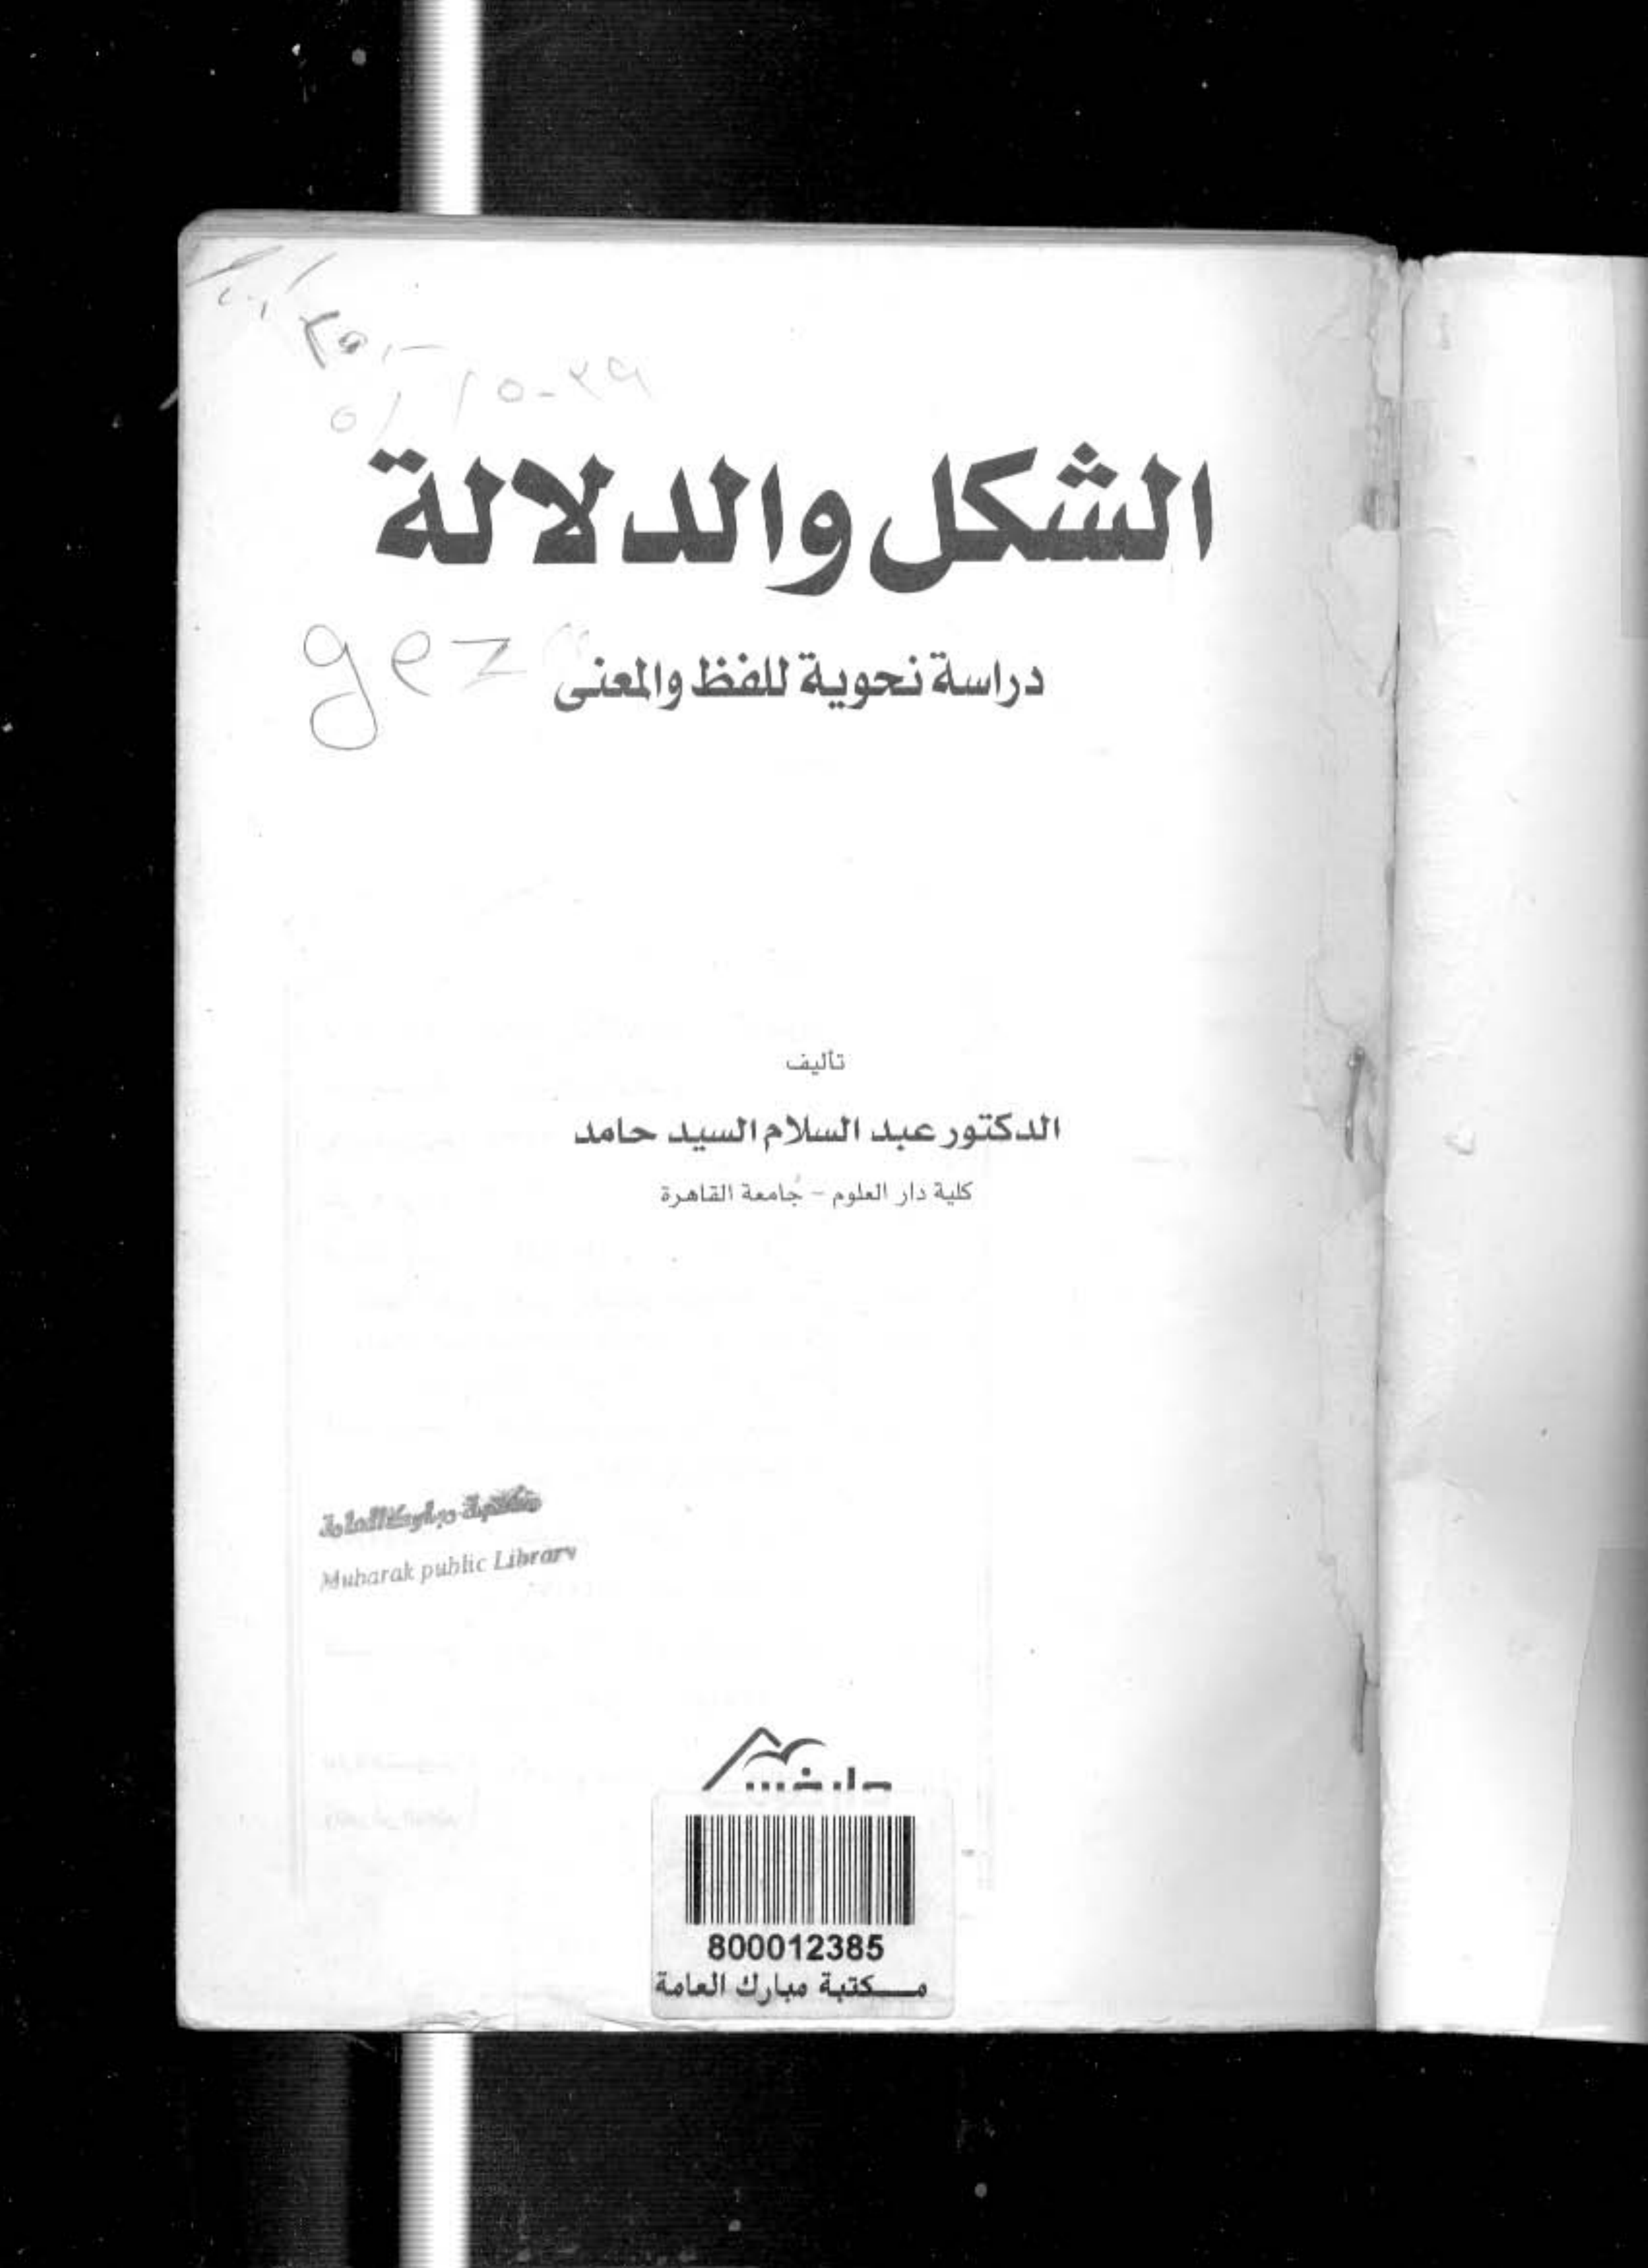 الشكل والدلالة
gez
دراسة نحوية للفظ والمعنى
تأليف
الدكتور عبد السلام السيد حامد
كلية دار العلوم - جامعة القاهرة
مكتبة مبارك العامة
Mubarak public Library
800012385
مكتبة مبارك العامة